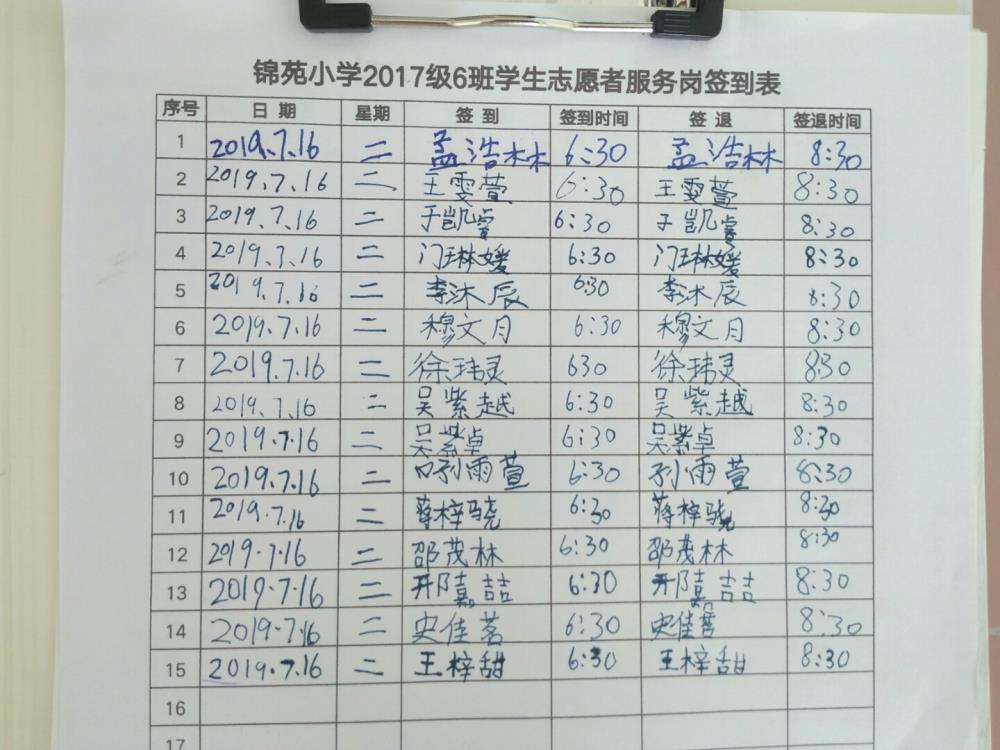 锦苑小学2017级6班学生志愿者服务岗签到表
序号 日期 星期 签到 签到时间 签退 签退时间
1 2019.7.16 二 孟浩林 6:30 孟浩林 8:30
2 2019.7.16 二 王雯萱 6:30 王雯萱 8:30
3 2019.7.16 二 于凯睿 6:30 于凯睿 8:30
4 2019.7.16 二 门琳媛 6:30 门琳媛 8:30
5 2019.7.16 二 李沐辰 6:30 李沐辰 8:30
6 2019.7.16 二 穆文月 6:30 穆文月 8:30
7 2019.7.16 二 徐玮灵 630 徐玮灵 8:30
8 2019.7.16 二 吴紫越 6:30 吴紫越 8:30
9 2019.7.16 二 吴紫卓 6:30 吴紫卓 8:30
10 2019.7.16 二 孙雨萱 6:30 孙雨萱 8:30
11 2019.7.16 二 蒋梓骁 6:30 蒋梓骁 8:30
12 2019.7.16 二 邵茂林 6:30 邵茂林 8:30
13 2019.7.16 二 邢嘉喆 6:30 邢嘉喆 8:30
14 2019.7.16 二 史佳茗 6:30 史佳茗 8:30
15 2019.7.16 二 王梓甜 6:30 王梓甜 8:30
16
17